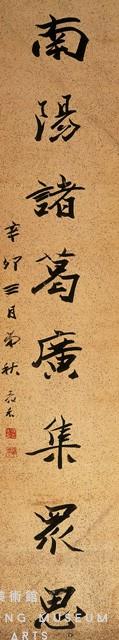 南陽諸葛廣集眾思
辛卯三月菊秋
美術館
NG MUSEUM
ARTS